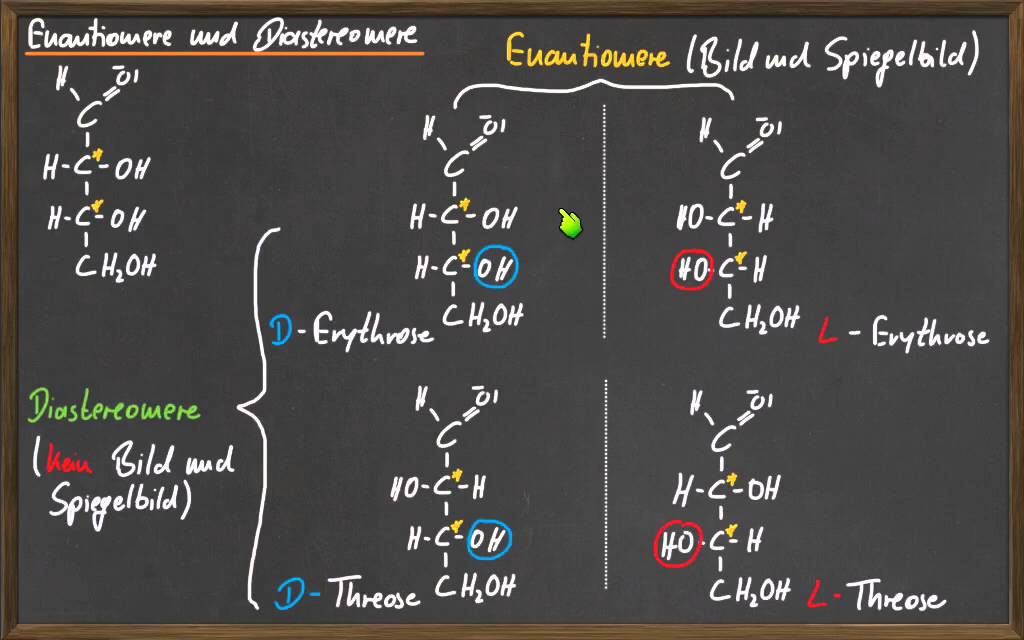 Enantiomere und Diastereomere
Enantiomere (Bild und Spiegelbild)
H O
C
H-C*-OH
H-C*-OH
CH₂OH
H O
C
H-C*-OH
H-C*-OH
CH₂OH
D-Erythrose
H O
C
HO-C*-H
HO-C*-H
CH₂OH
L-Erythrose
Diastereomere
(kein Bild und
Spiegelbild)
H O
C
HO-C*-H
H-C*-OH
CH₂OH
D-Threose
H O
C
H-C*-OH
HO-C*-H
CH₂OH
L-Threose